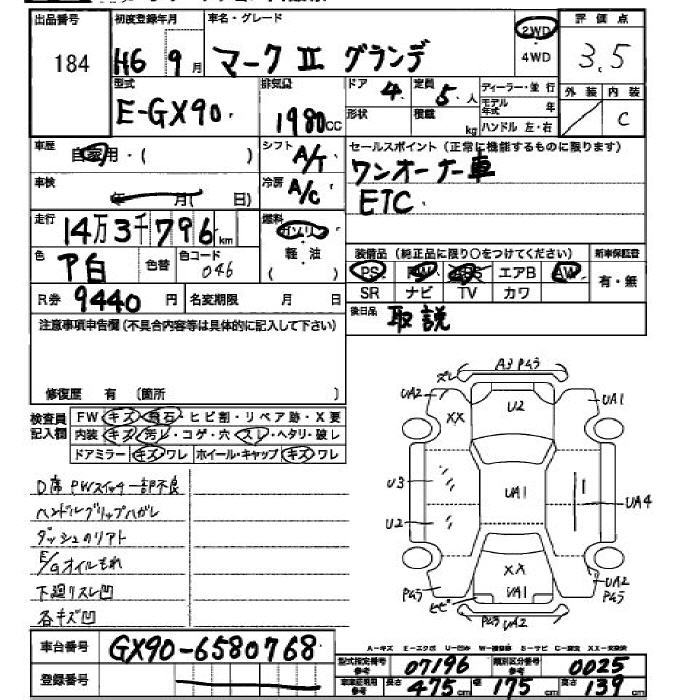 出品番号 初度登録年月 車名・グレード 評価点
184 H6 9月 マークII グランデ 2WD 4WD 3.5
型式 排気量 ドア 4 定員 5人 ディーラー・並行 外装 内装
E-GX90 1980cc 形状 積載 kg モデル年式 年 C
ハンドル 左・右
車歴 自家用・( ) シフト A/T セールスポイント(正常に機能するものに限ります)
ワンオーナー車
車検 年 月( 日) 冷房 A/C ETC
走行 14万3千796km 燃料 ガソリン
軽・油
( )
色 ア白 色替 色コード 046
装備品(純正品に限り○をつけてください) 新車保証書
PS PW エアB AW 有・無
SR ナビ TV カワ
R券 9440円 名変期限 月 日 後日品 取説
注意事項申告欄(不具合内容等は具体的に記入して下さい)
修復歴 有 〔箇所 〕
検査員記入欄 FW キズ・飛石・ヒビ割・リペア跡・X要
内装 キズ・汚レ・コゲ・穴・スレ・ヘタリ・破レ
ドアミラー キズ・ワレ ホイール・キャップ キズ・ワレ
D席PWスイッチ一部不良
ハンドルグリップハガレ
ダッシュのリアト
E/Gオイルもれ
下廻リスレ凹
各キズ凹
A3 P4ら
ズレ
UA2 XX U2 UA1
U3 UA1 UA4
U2
XX
P4ら UA1 UA2
P4ら
ヒビ
P4ら UA2
A-キズ E-エクボ U-凹み W-補修跡 S-サビ C-腐食 XX-交換済
車台番号 GX90-6580768
登録番号
型式指定番号 参考 07196 類別区分番号 参考 0025
車庫証明用 参考 長さ 475cm 幅 175cm 高さ 139cm